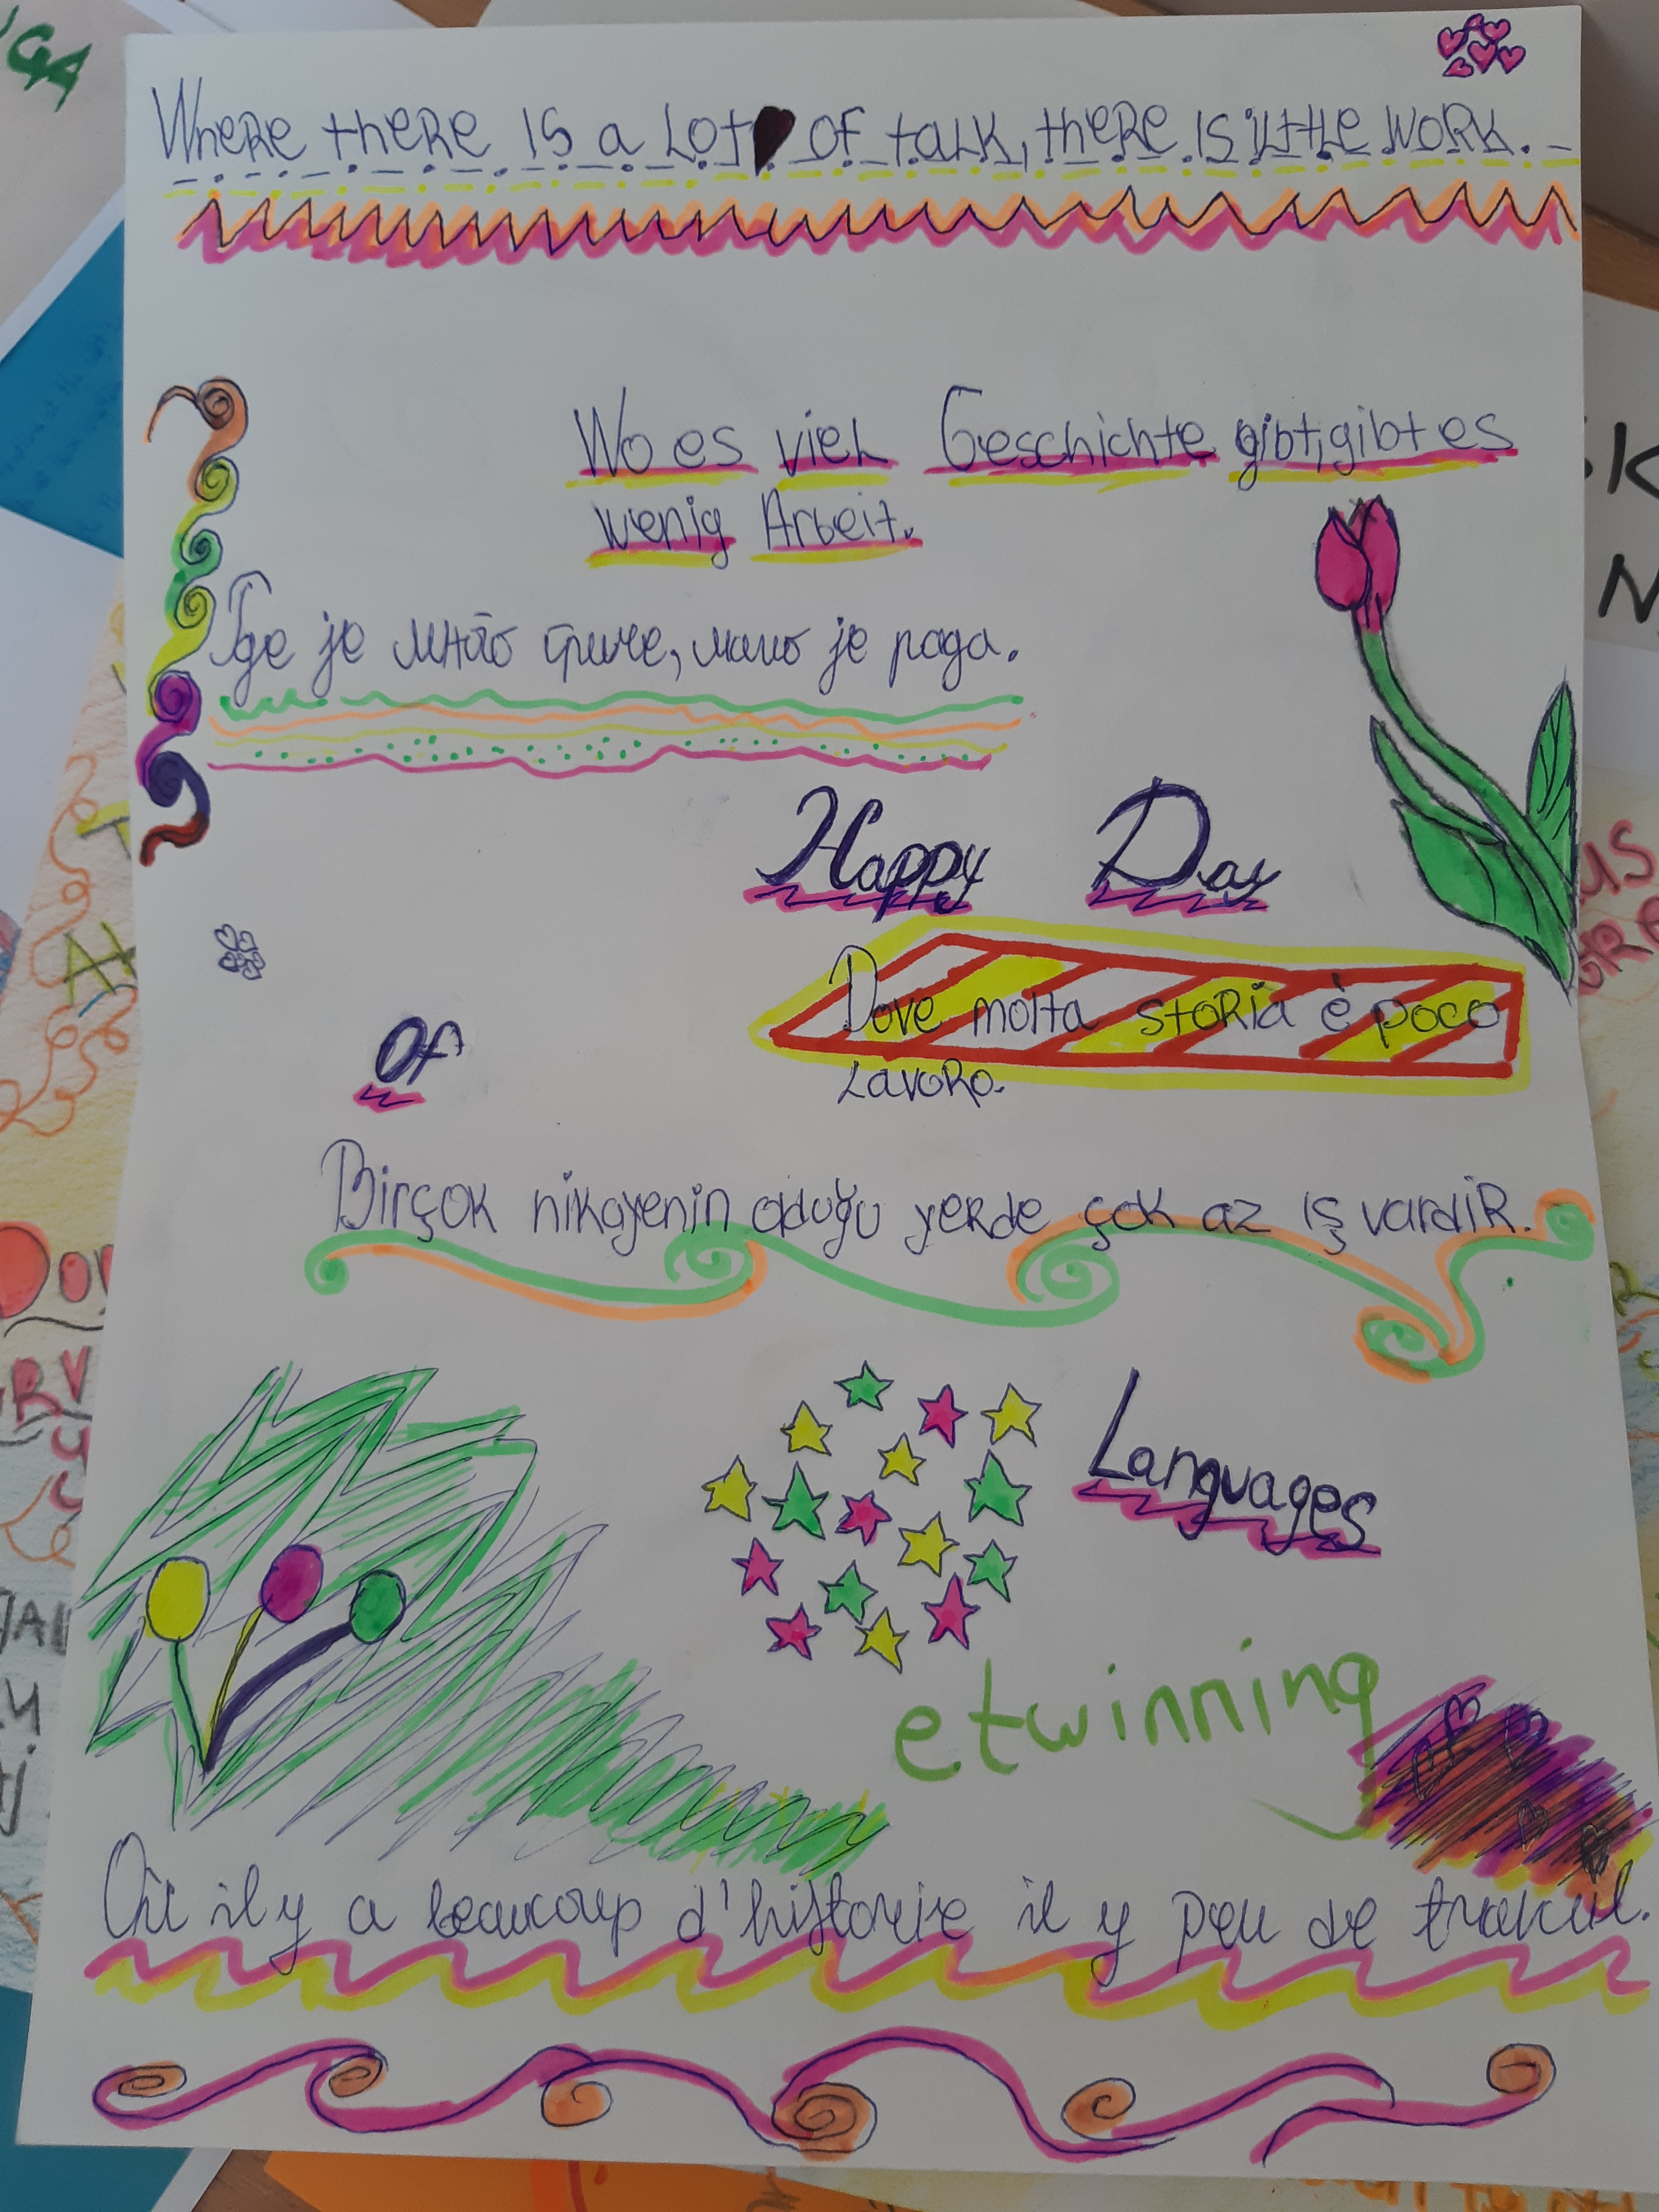 Where there is a lot of talk, there is little work.
Wo es viel Geschichte gibt, gibt es
wenig Arbeit.
Где је много приче, мало је рада.
Happy Day
Dove molta storia è poco
lavoro.
Of
Birçok hikayenin olduğu yerde çok az iş vardir.
Languages
etwinning
Où il y a beaucoup d'historie il y peu de travail.